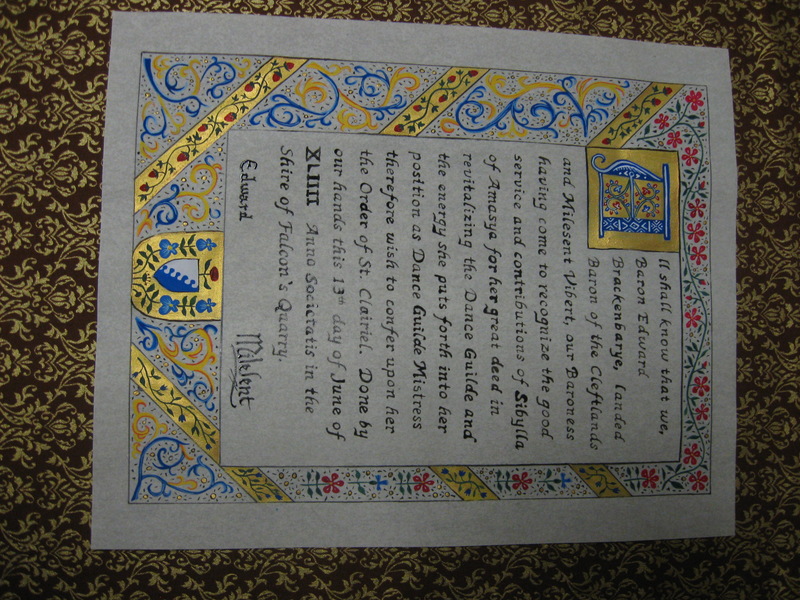 All shall know that we,
Baron Edward
Brackenbarye, landed
Baron of the Cleftlands
and Milesent Vibert, our Baroness
having come to recognize the good
service and contributions of Sibylla
of Amasya for her great deed in
revitalizing the Dance Guilde and
the energy she puts forth into her
position as Dance Guilde Mistress
therefore wish to confer upon her
the Order of St. Clairiel. Done by
our hands this 13th day of June of
XLIIII Anno Societatis in the
Shire of Falcon's Quarry.
Edward Milesent